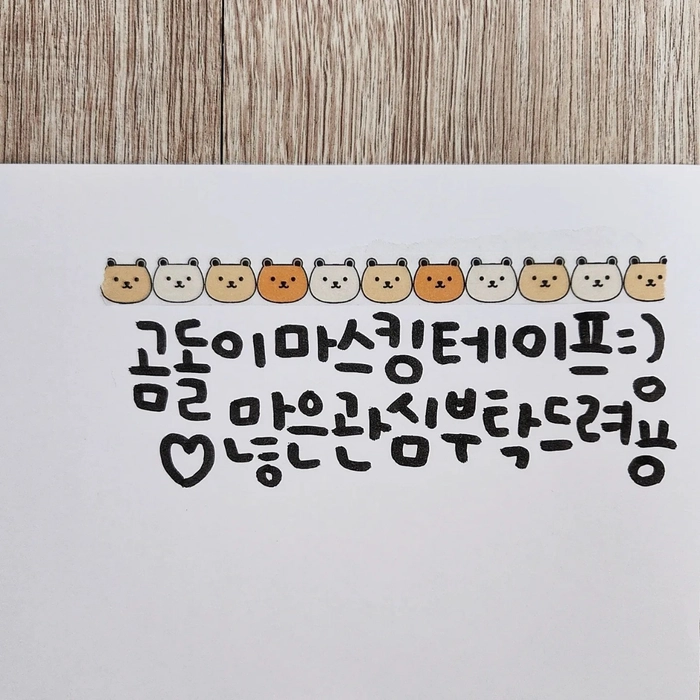 곰돌이마스킹테이프:)
♡많은관심부탁드려용